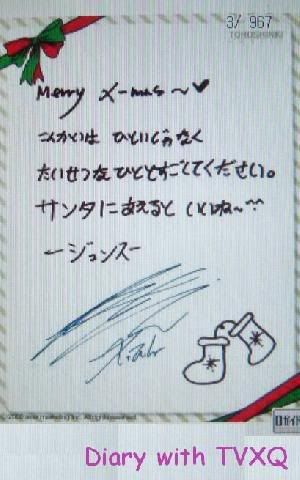 3/ 967
TOHOSHINKI
Merry X-mas~♥
こんかいは ひとりじゃなく
たいせつなひととすごしてください。
サンタにあえると いいね~^^
ージュンスー
Xiah
All rights reserved.
Diary with TVXQ